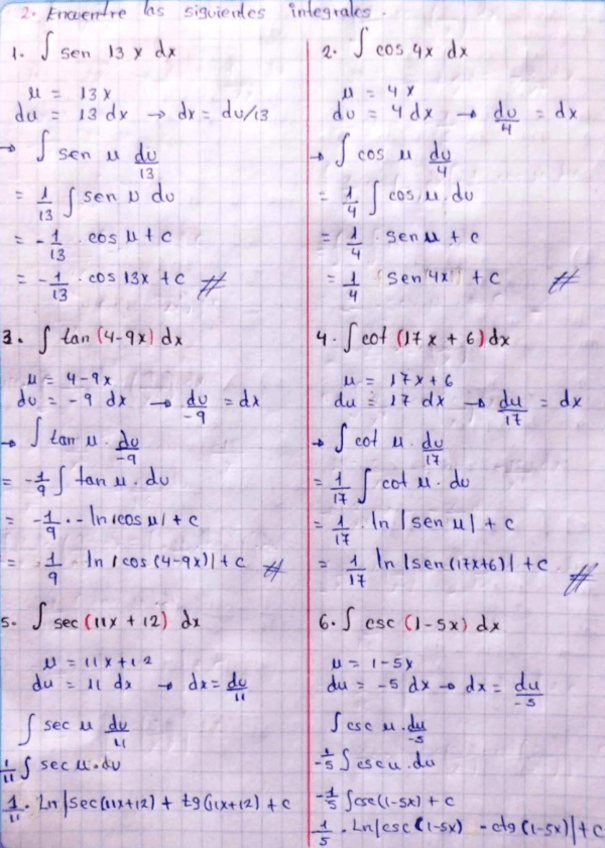 2. Encuentre las siguientes integrales.
1. ∫ sen 13 x dx
u = 13x
du = 13 dx → dx = du/13
→ ∫ sen u du/13
= 1/13 ∫ sen u du
= -1/13 · cos u + c
= -1/13 · cos 13x + c #
2. ∫ cos 4x dx
u = 4x
du = 4 dx → du/4 = dx
→ ∫ cos u du/4
= 1/4 ∫ cos u · du
= 1/4 · sen u + c
= 1/4 · sen 4x + c #
3. ∫ tan (4-9x) dx
u = 4-9x
du = -9 dx → du/-9 = dx
→ ∫ tan u · du/-9
= -1/9 ∫ tan u · du
= -1/9 · - ln |cos u| + c
= 1/9 ln |cos (4-9x)| + c #
4. ∫ cot (17x + 6) dx
u = 17x+6
du = 17 dx → du/17 = dx
→ ∫ cot u · du/17
= 1/17 ∫ cot u · du
= 1/17 · ln |sen u| + c
= 1/17 ln |sen (17x+6)| + c #
5. ∫ sec (11x + 12) dx
u = 11x+12
du = 11 dx → dx = du/11
∫ sec u du/11
1/11 ∫ sec u · du
1/11 · Ln |sec (11x+12) + tg (11x+12) + c
6. ∫ csc (1-5x) dx
u = 1-5x
du = -5 dx → dx = du/-5
∫ csc u · du/-5
-1/5 ∫ csc u · du
-1/5 ∫ csc (1-5x) + c
1/5 · Ln |csc (1-5x) - ctg (1-5x)| + c